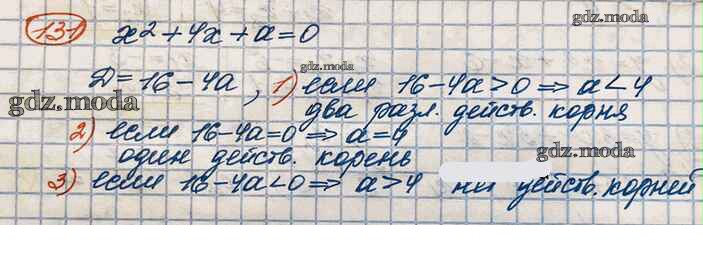 131 x² + 4x + a = 0
gdz.moda
gdz.moda
D = 16 - 4a, 1) если 16 - 4a > 0 ⇒ a < 4
gdz.moda
gdz.moda
два разл. действ. корня
2) если 16 - 4a = 0 ⇒ a = 4
один действ. корень
gdz.moda
3) если 16 - 4a < 0 ⇒ a > 4 действ. корней
gdz.moda